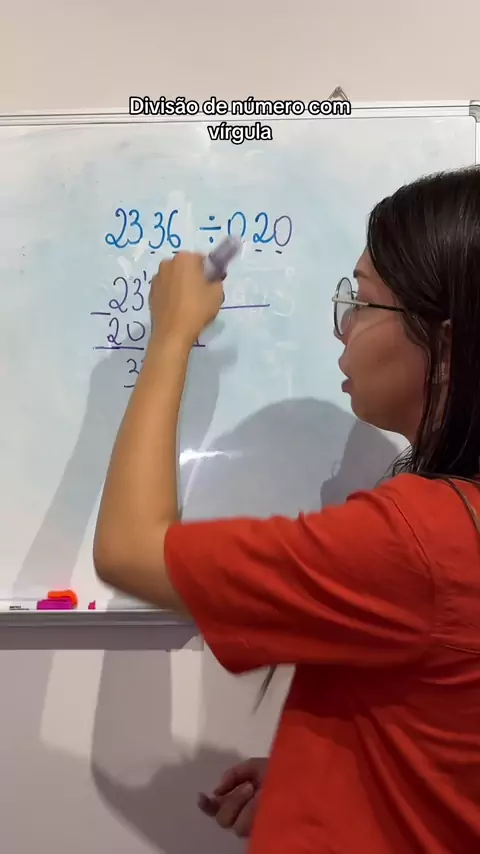 Divisão de número com
vírgula
2336 ÷ 020
23
20